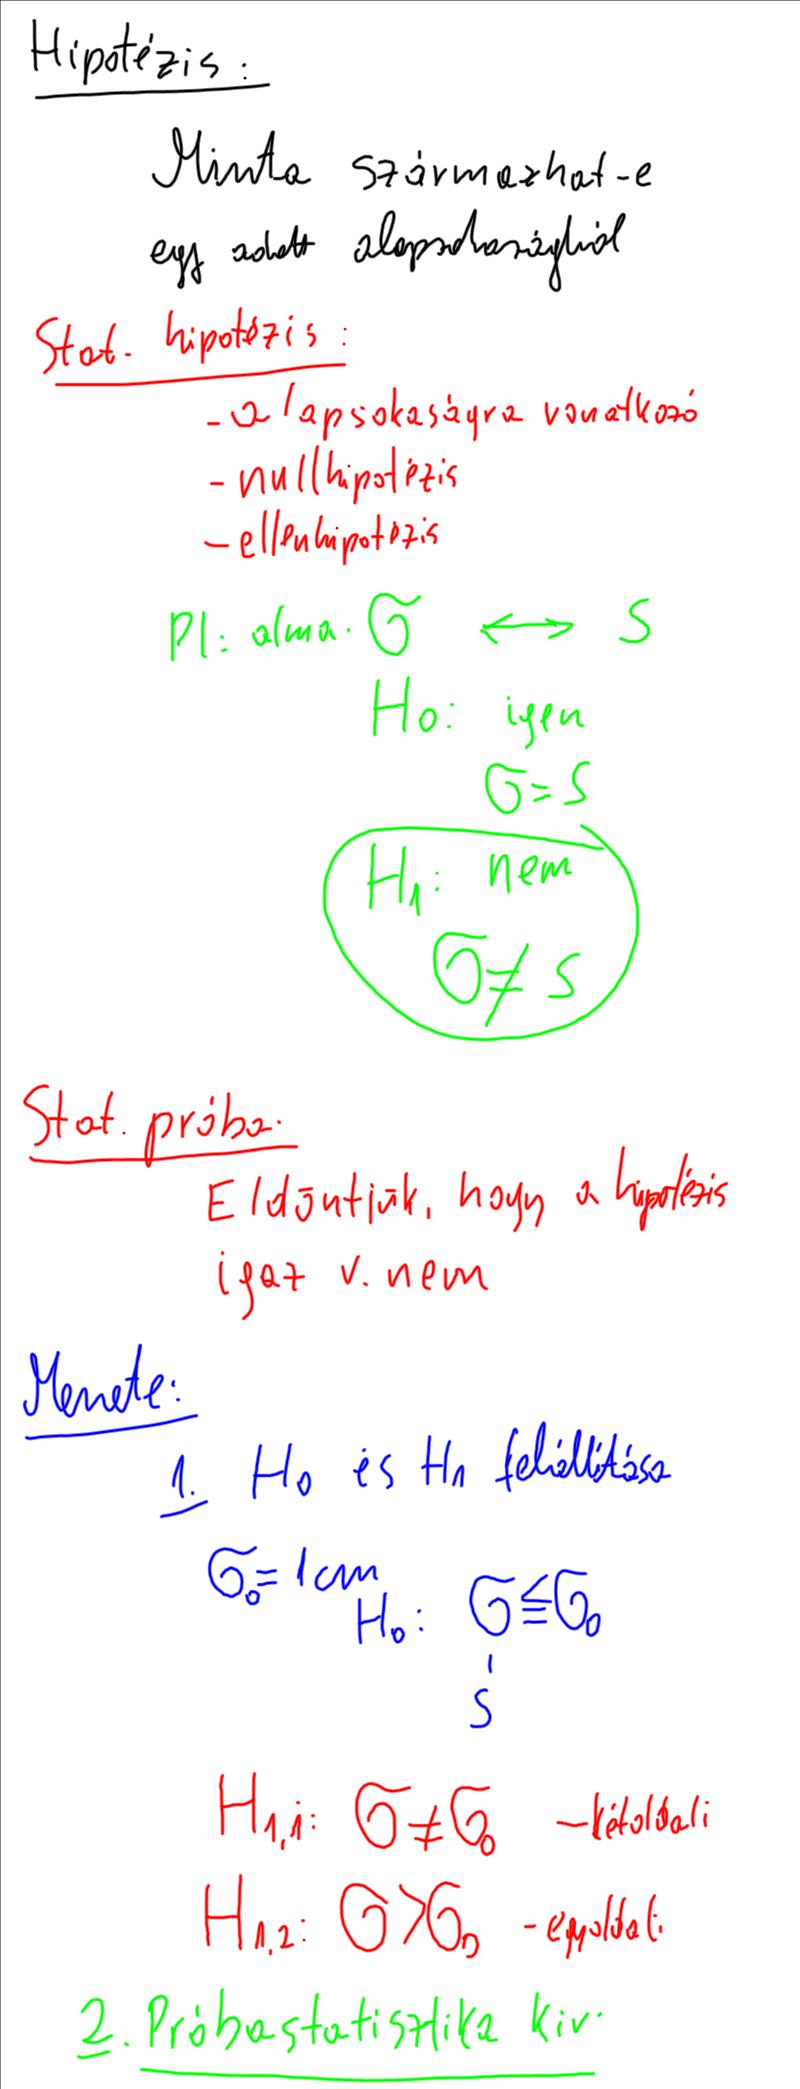 Hipotézis:
Minta származhat-e
egy adott alapsokaságból
Stat. hipotézis:
- alapsokaságra vonatkozó
- nullhipotézis
- ellenhipotézis
Pl: alma. σ ↔ s
H0: igen
σ = s
H1: nem
σ ≠ s
Stat. próba.
Eldöntjük, hogy a hipotézis
igaz v. nem
Menete:
1. H0 és H1 felállítása
σ0 = 1cm
H0: σ ≦ σ0
s
H1,1: σ ≠ σ0 - kétoldali
H1,2: σ > σ0 - egyoldali
2. Próbastatisztika kiv.